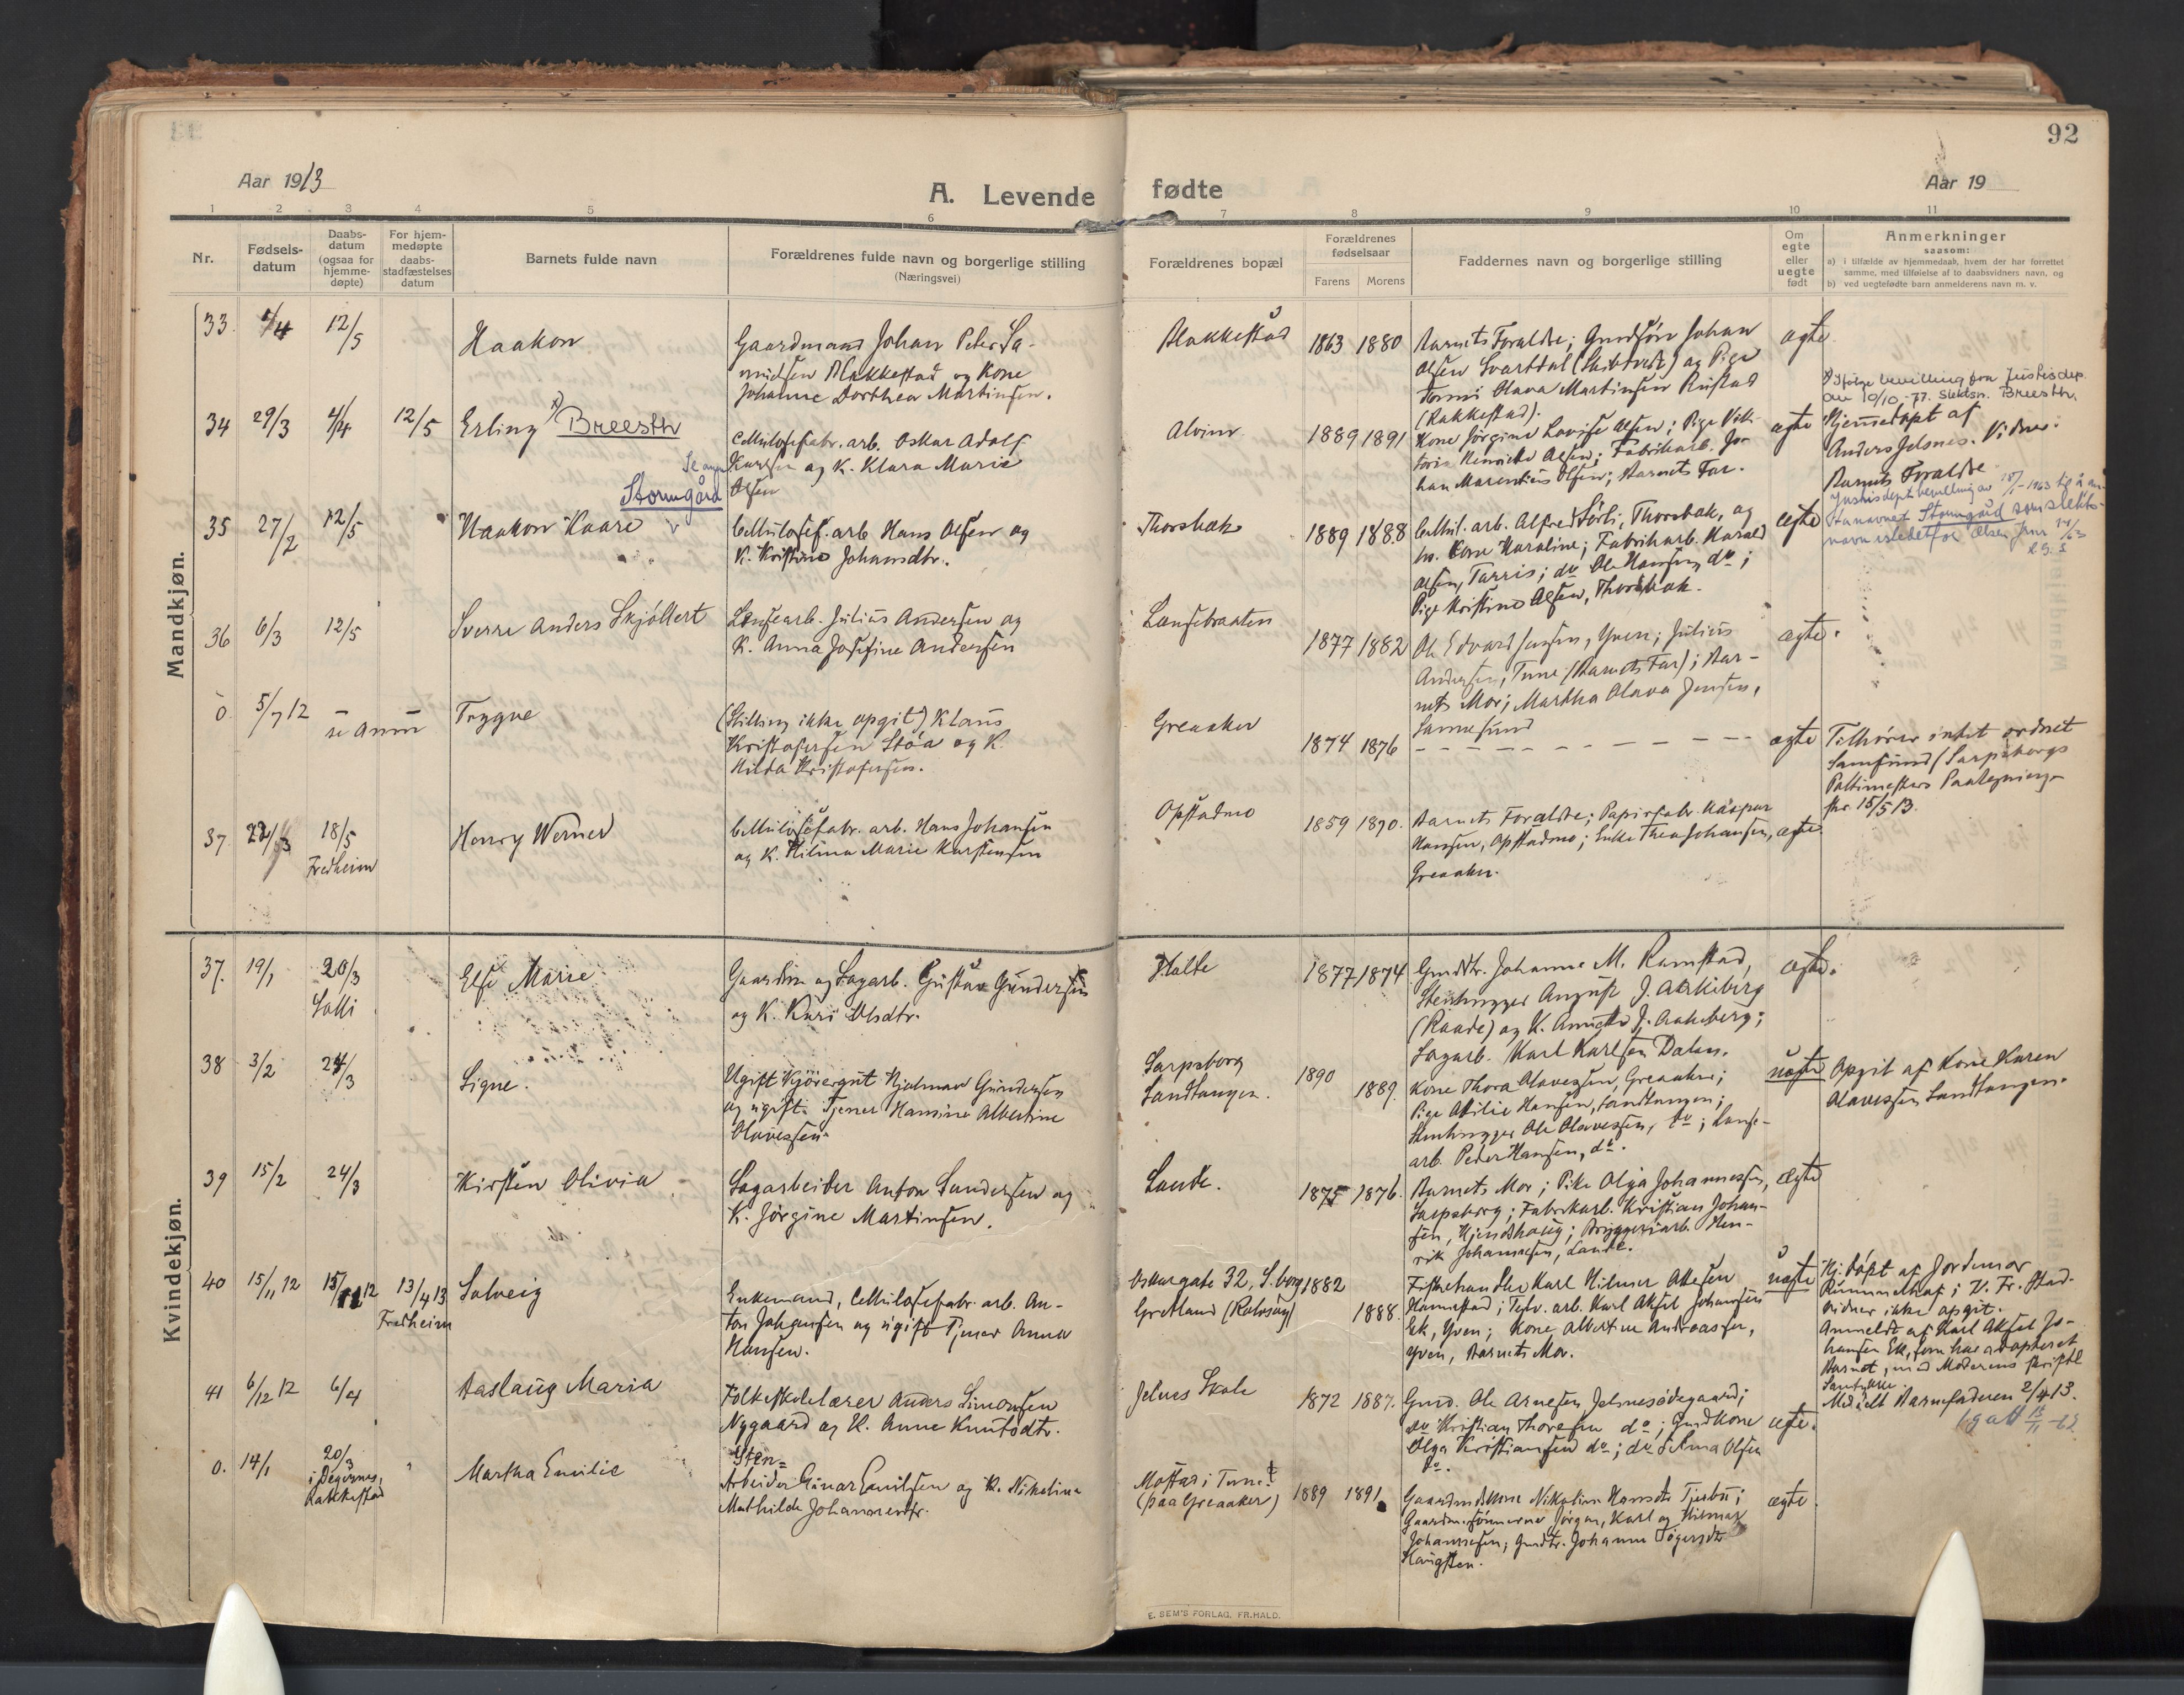 92
Aar 1913
A. Levende fødte
Aar 19
1 2 3 4 5 6 7 8 9 10 11
Nr.
Fødsels-
datum
Daabs-
datum
(ogsaa for
hjemme-
døpte)
For hjem-
medøpte
daabs-
stadfæstelses
datum
Barnets fulde navn
Forældrenes fulde navn og borgerlige stilling
(Næringsvei)
Forældrenes bopæl
Forældrenes
fødselsaar
Farens Morens
Faddernes navn og borgerlige stilling
Om
egte
eller
uegte
født
Anmerkninger
saasom:
a) i tilfælde av hjemmedaab, hvem der har forrettet
samme, med tilføielse af to daabsvidners navn, og
b) ved uegtefødte barn anmelderens navn m. v.
Mandkjøn.
33 12/5
Haakon
Gaardmand Johan Peter Sa-
muelsen Blakkestad og Kone
Johanne Dorthea Martinsen.
Blakkestad
1863 1880
Barnets Forældre; Gmdsøn Johan
Olsen Svartdal (Skibtvedt) og Pige
Olava Martinsen Rustad
(Rakkestad).
ægte
34 29/3 4/4 12/5
Erling x) Breesth
Cellulosefabr. arb. Oskar Adolf
Karlsen og K. Klara Marie
Olsen
Alvim
1889 1891
Kone Jørgine Lovise Olsen; Pige Vik-
toria Henriette Olsen; Fabrikarb. Jo-
han Marentius Olsen; Barnets Far.
ægte
x) Ifølge bevilling fra Justisdep.
av 10/10-77. slektsn. Breesth.
Hjemmedøpt af
Anders Jelsnes. Vidner:
Barnets Forældre
35 27/2 12/5
Haakon Kaare
Se anm
Stormgård
Cellulosef. arb. Hans Olsen og
K. Kristine Johansdtr.
Thorsbak
1889 1888
Cellul. arb. Alfred Sørli, Thorsbak, og
h. Kone Karoline; Fabrikarb. Harald
Olsen, Tarris; do Ole Hansen, do;
Pige Kristine Olsen, Thorsbak.
ægte
Justisdepts bevilling av 18/1-1963 til å an-
ta navnet Stormgård som slekts-
navn istedetfor Olsen
36 6/3 12/5
Sverre Anders Skjøllert
Lensearb. Julius Andersen og
K. Anna Josefine Andersen
Lensebraaten
1877 1882
Ole Edvard Jensen, Yven; Julius
Andersen, Tune (Barnets Far); Bar-
nets Mor; Martha Olava Jensen,
Sannesund
ægte.
0 5/7 12 – se anm –
Trygve
(Stilling ikke opgit) Klaus
Kristofersen Stöa og K.
Hilda Kristofersen.
Greaaker
1874 1876
– – – – – – – – – – –
ægte
Tilhører intet ordnet
Samfund (Sarpsborgs
Politimesters Paategning
skr. 15/5 13.
37 22/3 18/5
Fredheim
Henry Werner
Cellulosefabr. arb. Hans Johansen
og K. Hilma Marie Karstensen
Opstadmo
1859 1870.
Barnets Forældre; Papirfabr. Kaspar
Hansen, Opstadmo; Enke Thea Johansen,
Greaaker.
ægte
Kvindekjøn.
37. 19/1 20/3
Solli
Else Marie
Gaardm og Sagarb. Gustav Gundersen
og K. Kari Olsdtr.
Holte
1877 1874
Gmddtr. Johanne M. Ramstad,
Stenhugger August J. Aakeberg
(Raade) og K. Annette J. Aakeberg;
Sagarb. Karl Karlsen Dalen.
ægte.
38 3/2 24/3
Signe.
Ugift Kjöregut Hjalmar Gundersen
og ugifte Tjener Hansine Albertine
Olavessen
Sarpsborg
Sandtangen.
1890 1889.
Kone Thora Olavessen, Greaaker;
Pige Otilie Hansen, Sandtangen;
Stenhugger Ole Olavessen, do; Lense-
arb. Peder Hansen, do.
uægte
Opgit af Kone Karen
Olavessen Sandtangen.
39 15/2 24/3
Kirsten Olivia
Sagarbeider Anton Gundersen og
K. Jørgine Martinsen.
Lande.
1875 1876.
Barnets Mor; Pike Olga Johannessen,
Sarpsborg; Fabrikarb. Kristian Johan-
sen, Hjendshaug; Bryggeriarb. Hen-
rik Johannesen, Lande.
ægte
40 15/11 12 15/11 12 13/4 13
Fredheim
Solveig
Enkemand, Cellulosefabr. arb. An-
ton Johansen og ugift Tjener Anna
Hansen.
Oskargate 32, S.borg
Grötland (Rolvsøy)
1882 1888.
Fiskehandler Karl Hilmer
Hannestad; Karl Aksel Johansen
Ek, Yven; Kone Albertine Andreassen,
Yven, Barnets Mor.
uægte
Hj. døpt af Jordemor
i V. Fr. stad.
Vidner ikke opgit.
Anmeldt af Karl Aksel Jo-
hansen Ek, som har adopteret
Barnet, med Moderens skriftl
Samtykke.
Meddelt Barnefaderen 2/4 13.
41 6/12 12 6/4
Aaslaug Maria
Folkeskolelærer Anders Simonsen
Nygaard og K. Anne Knutsdtr.
Jelsnes Skole
1872 1887.
Gmd. Ole Arnesen Jelsnesødegaard;
do Kristian Thoresen do; Gmdkone
Olga Kristiansen do; do Selma Olsen
do.
ægte.
0. 14/1 20/3
i Degernes,
Rakkestad
Martha Emilie
Sten=
Arbeider Einar Emilsen og K. Nikoline
Mathilde Johannesdtr.
Mostad i Tune
(paa Greaaker)
1889 1891
Gaardmdkone Nikoline Hansdtr
Gaardmsønnerne Jørgen, Karl og Hilmar
Johannesen; Gmdtr. Johanne
Haugsten.
ægte.
E. SEM'S FORLAG, FR.HALD.